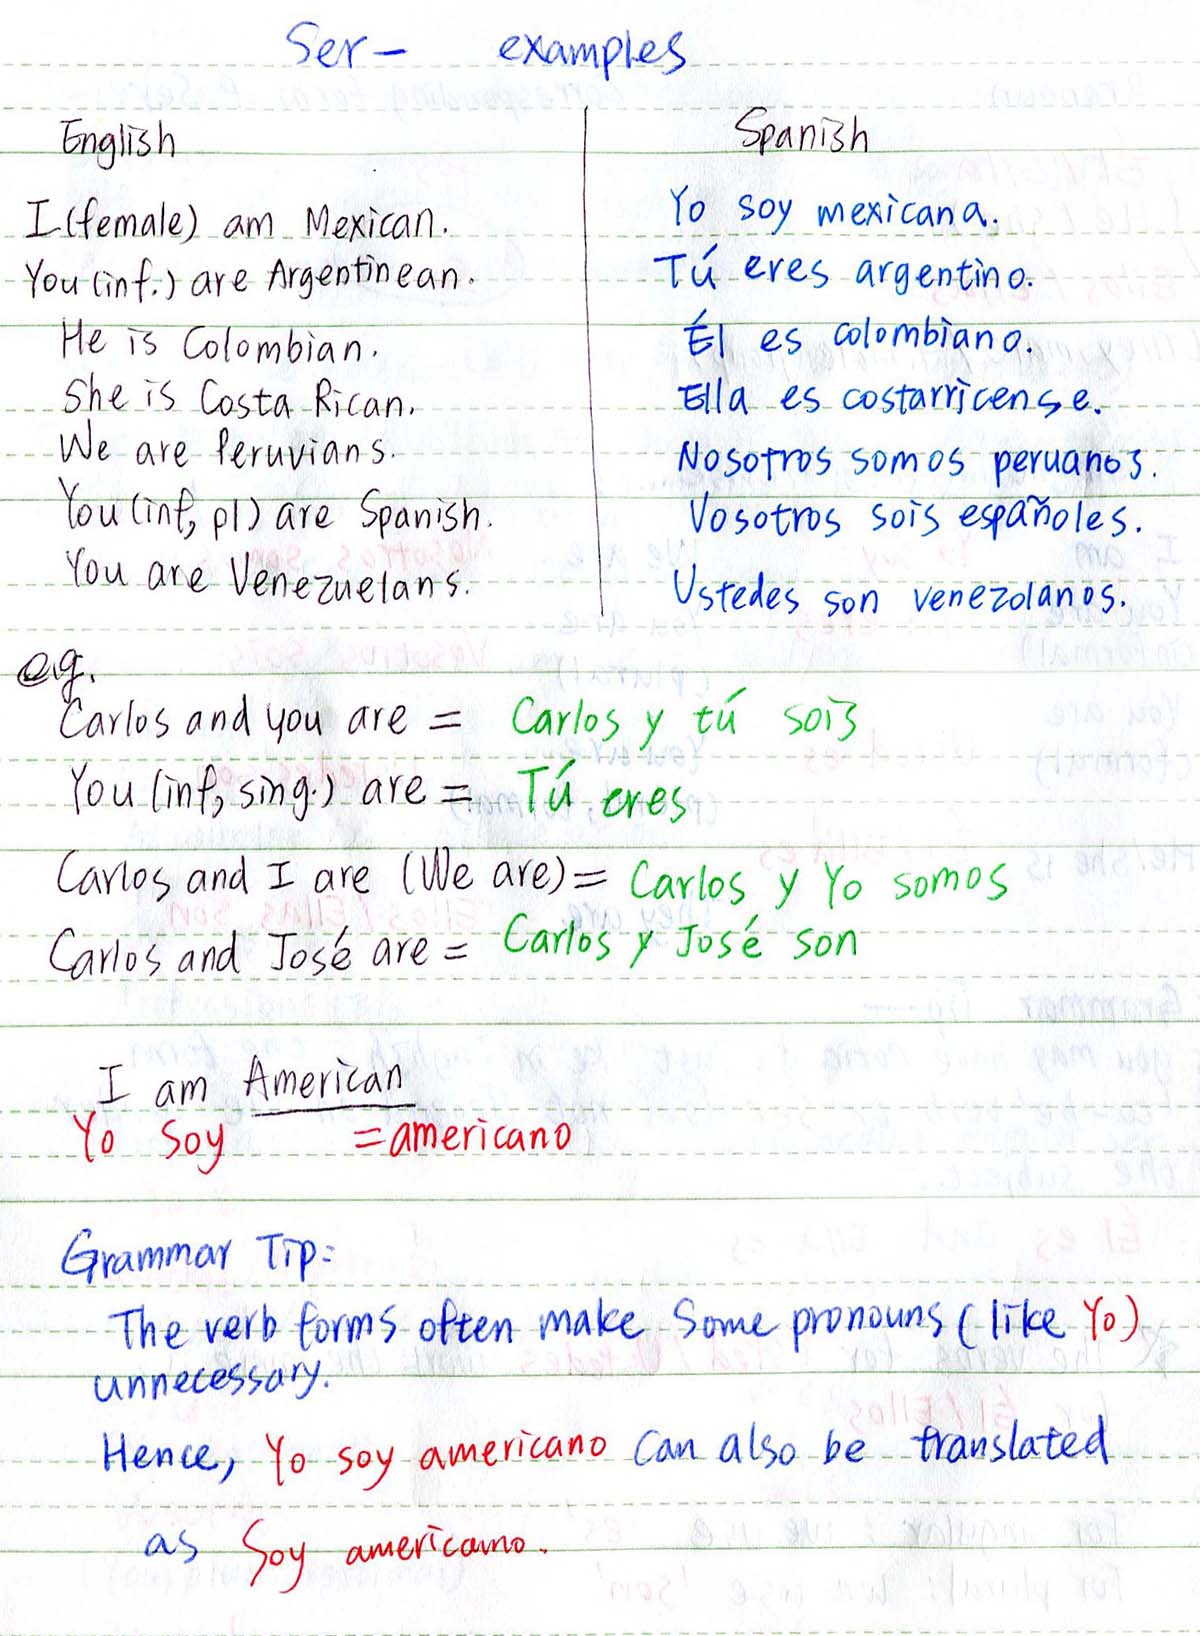 Ser- examples
English Spanish
I (female) am Mexican. Yo soy mexicana.
You (inf.) are Argentinean. Tú eres argentino.
He is Colombian. Él es colombiano.
She is Costa Rican. Ella es costarricense.
We are Peruvians. Nosotros somos peruanos.
You (inf, pl) are Spanish. Vosotros sois españoles.
You are Venezuelans. Ustedes son venezolanos.
e.g.
Carlos and you are = Carlos y tú sois
You (inf, sing.) are = Tú eres
Carlos and I are (We are) = Carlos y Yo somos
Carlos and José are = Carlos y José son
I am American
Yo soy = americano
Grammar Tip:
The verb forms often make some pronouns (like Yo)
unnecessary.
Hence, Yo soy americano can also be translated
as Soy americano.